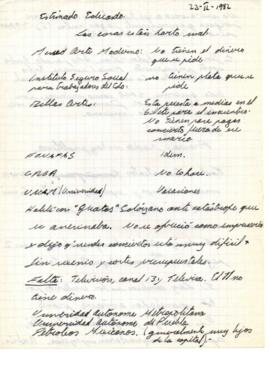 23-II-1982
Estimado Eduardo.
Las cosas están harto mal.
Museo Arte Moderno: No tienen el dinero
que se pide
Instituto Seguro Social no tienen plata que se
para trabajadores del Edo: pide
Bellas Artes: Está puesta a medias en el
para el
No tienen para pagar
concierto, fuera de
FONAPAS idem.
No lo hace.
(Universidad) Vacaciones
"Guatas" Solórzano ante catástrofe que
se avecinaba. No se ofreció como empresario
y dijo giras conciertos está muy difícil
sin y cortes presupuestales.
Falta: Televisión, canal 13 y Televisa. El 11 no
tiene dinero.
Universidad Autónoma Metropolitana
Universidad Autónoma de Puebla
Petróleos Mexicanos. (generalmente muy lejos
de la capital).-